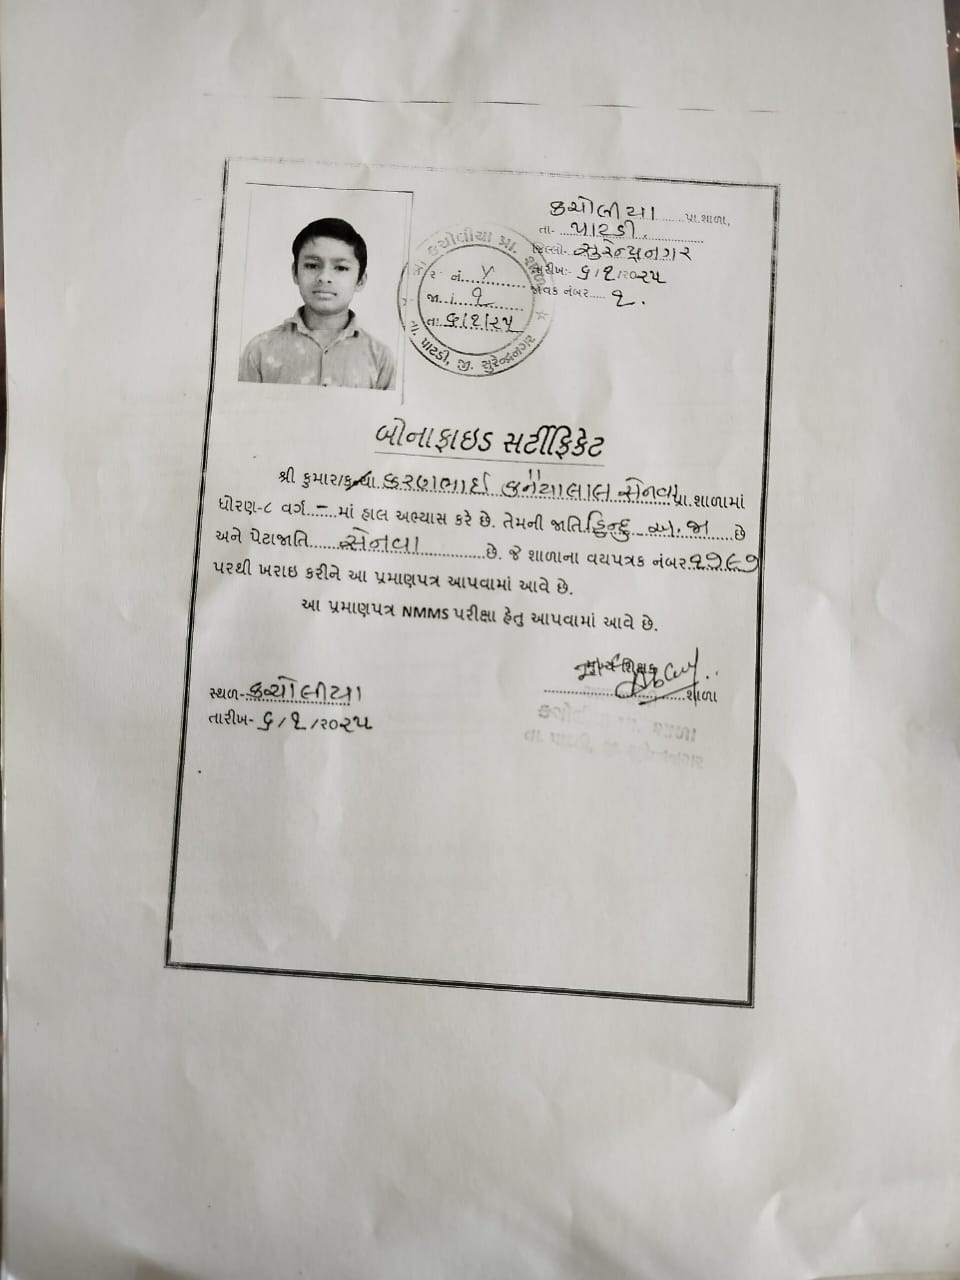 કચોલીયા પ્રા.શાળા,
તા- પાટડી.
જિલ્લો- સુરેન્દ્રનગર
તારીખ:- ૬/૧/૨૦૨૫
જાવક નંબર..... ૧.
કચોલીયા પ્રા. શાળા
ર નં. ૪
જા. નં. ૧
તા. ૬/૧/૨૫
તા. પાટડી, જી. સુરેન્દ્રનગર
બોનાફાઇડ સર્ટીફિકેટ
શ્રી કુમાર/કન્યા કરણભાઈ કનૈયાલાલ સેનવા પ્રા.શાળામાં
ધોરણ-૮ વર્ગ - માં હાલ અભ્યાસ કરે છે. તેમની જાતિ હિન્દુ અ.જા છે
અને પેટાજાતિ સેનવા છે. જે શાળાના વયપત્રક નંબર ૧૧૬૭
પરથી ખરાઇ કરીને આ પ્રમાણપત્ર આપવામાં આવે છે.
આ પ્રમાણપત્ર NMMS પરીક્ષા હેતુ આપવામાં આવે છે.
મુખ્ય શિક્ષક
સ્થળ- કચોલીયા
શાળા
તારીખ- ૬/૧/૨૦૨૫